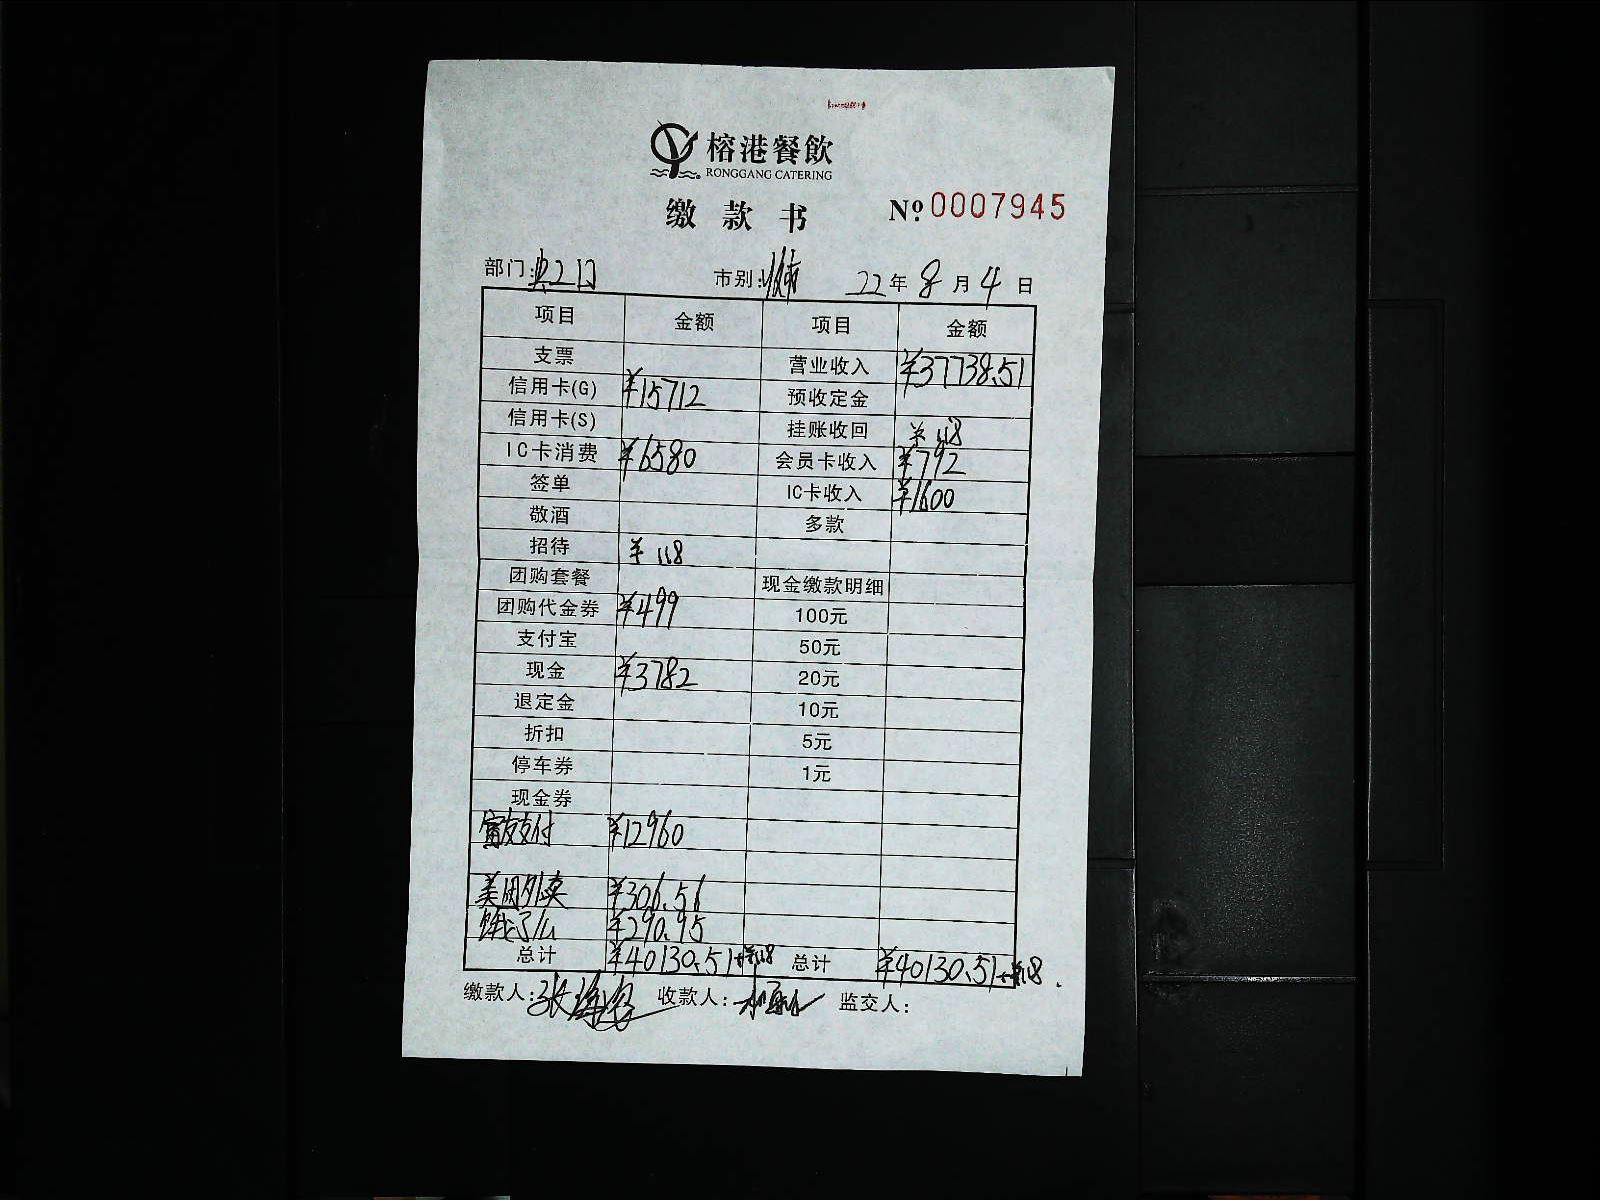 榕港餐飲
RONGGANG CATERING
缴款书 №0007945
部门: 市别: 22年8月4日
项目 金额 项目 金额
支票 营业收入 ¥37738.51
信用卡(G) ¥15712 预收定金
信用卡(S) 挂账收回 ¥118
IC卡消费 ¥6580 会员卡收入 ¥792
签单 IC卡收入 ¥1600
敬酒 多款
招待 ¥118
团购套餐 现金缴款明细
团购代金券 ¥499 100元
支付宝 50元
现金 ¥3782 20元
退定金 10元
折扣 5元
停车券 1元
现金券
富友支付 ¥12960
美团外卖 ¥306.56
饿了么 ¥290.95
总计 ¥40130.51+¥118 总计 ¥40130.51+¥118
缴款人: 收款人: 监交人: